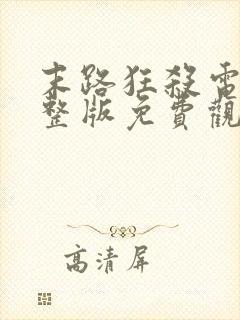 末路狂殺電
整版免費觀
高清屏